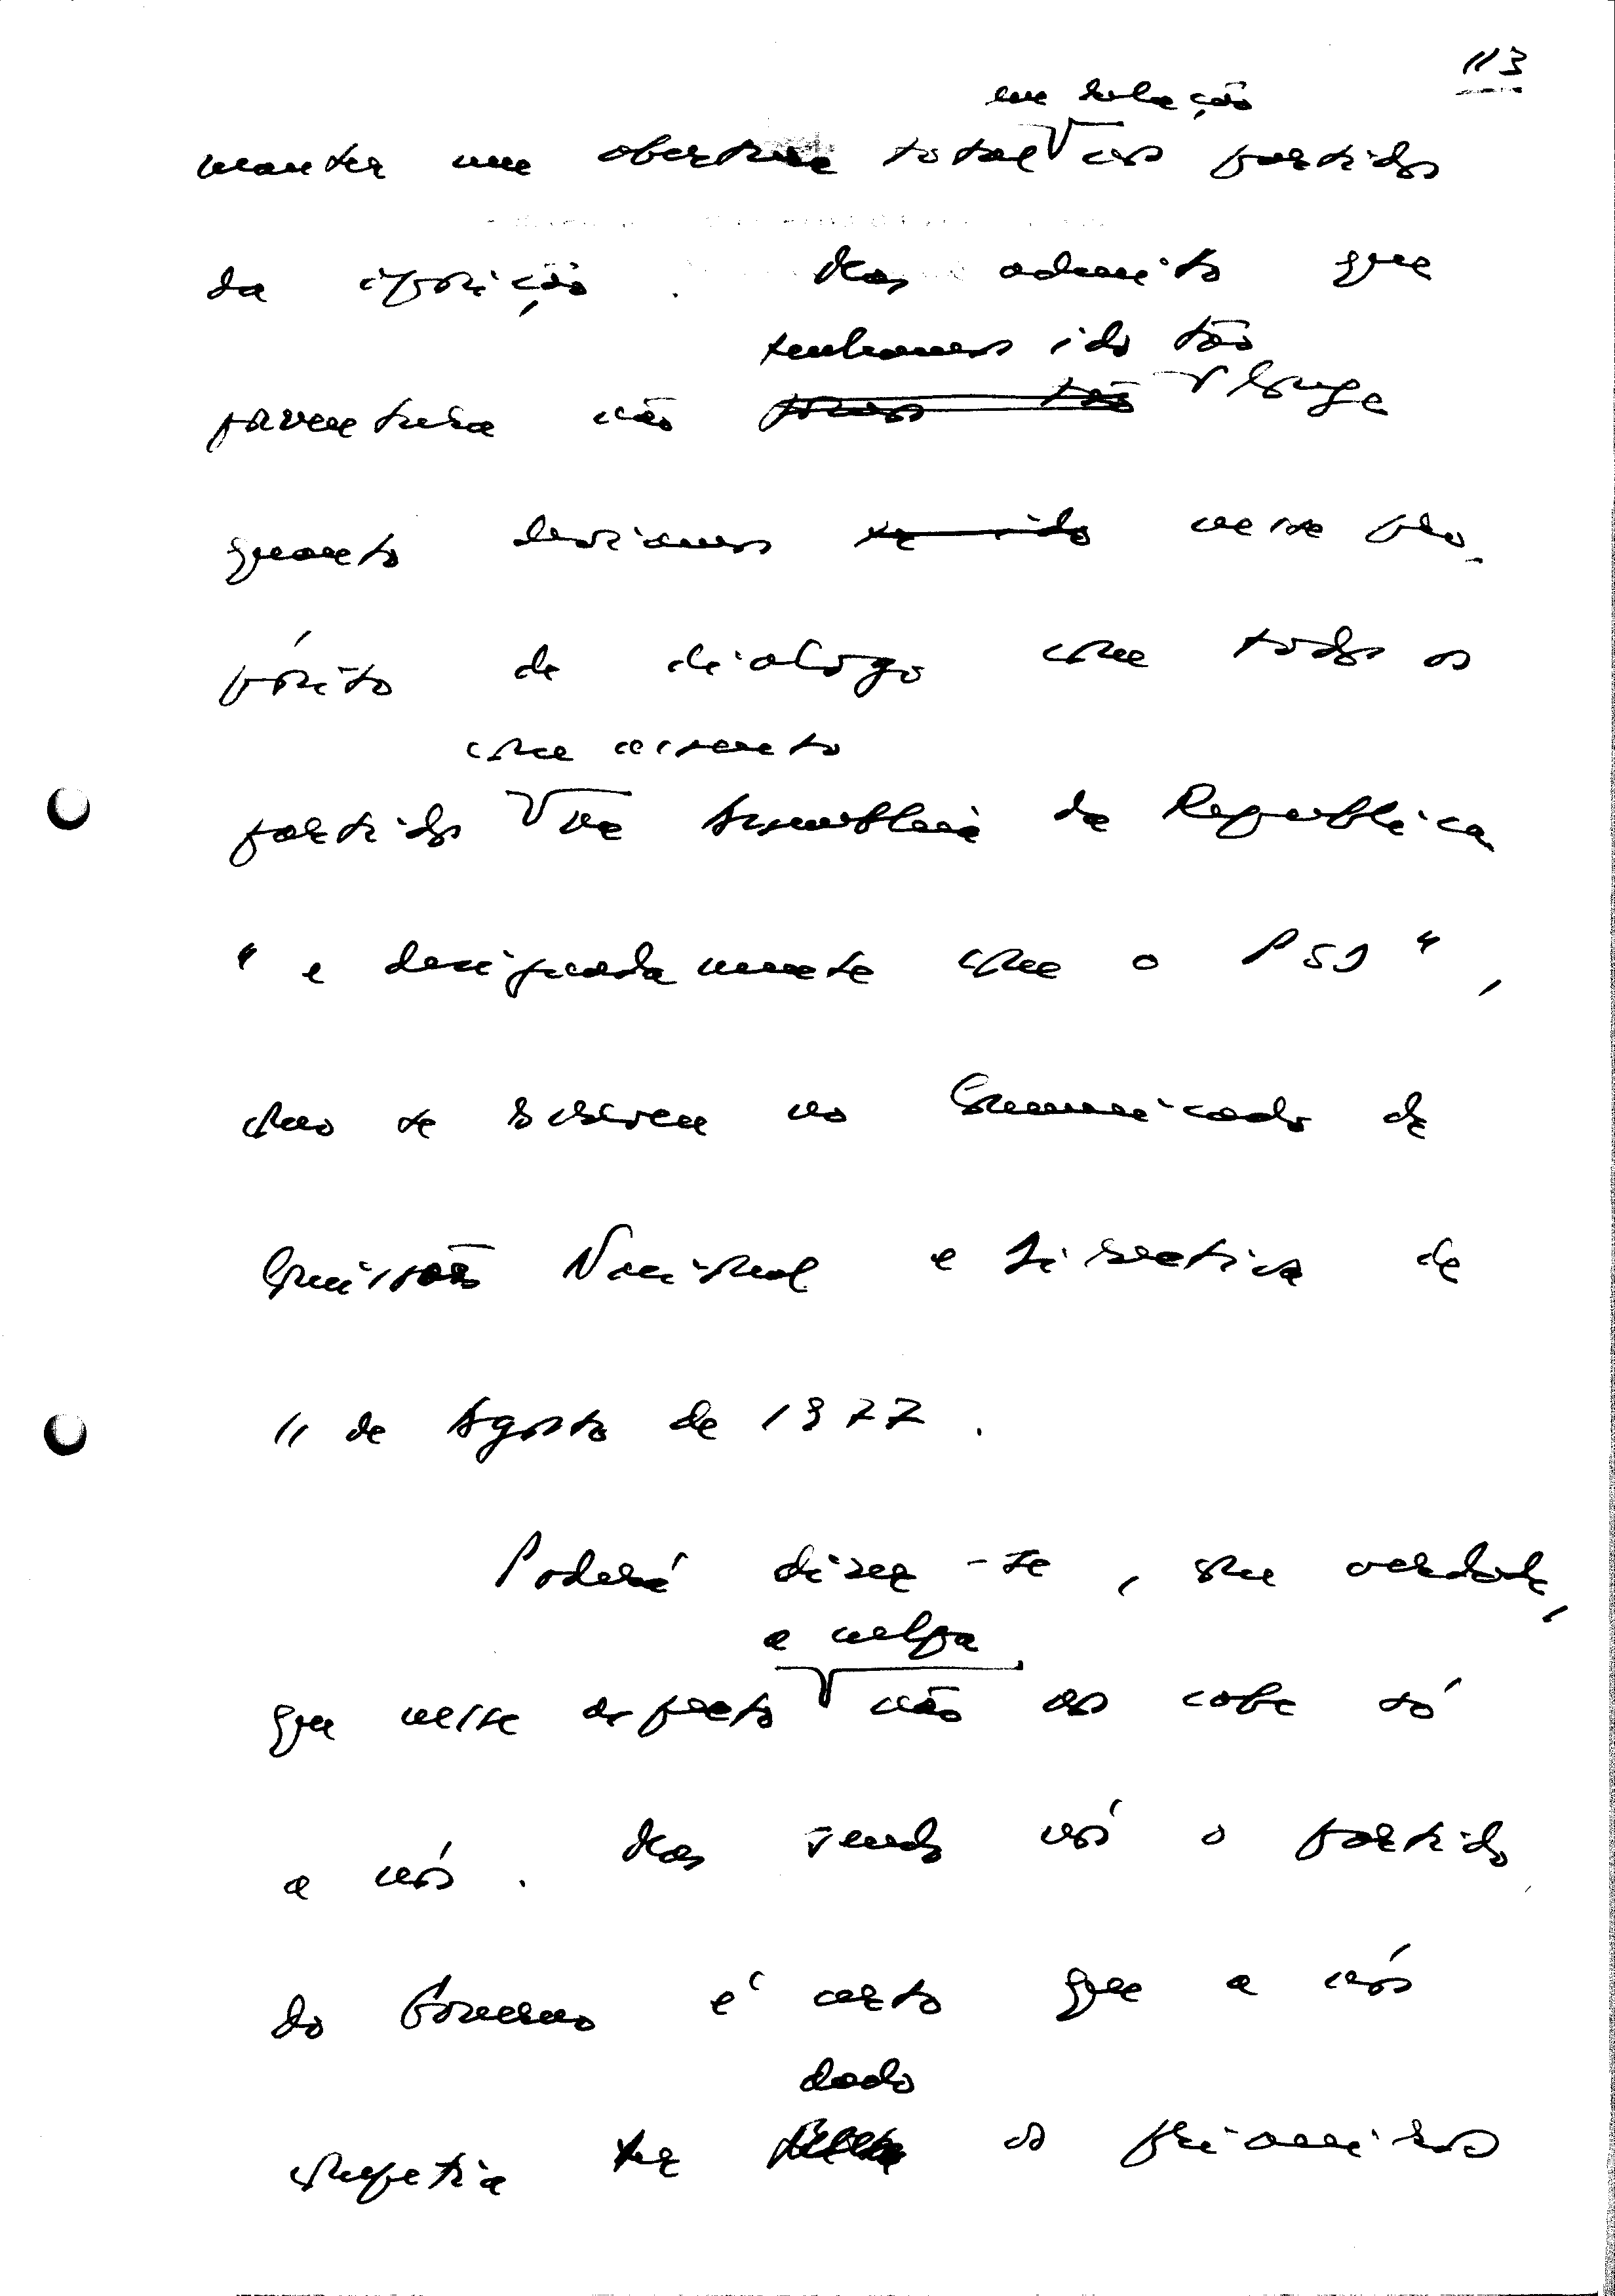 113
em relação
manter uma abertura total aos partidos
da oposição. Mas admito que
tenhamos ido tão
porventura não longe
quanto devíamos nesse pro-
pósito de dialogo com todos os
com assento
partidos na Assembleia da Republica
"e designadamente com o PSD",
como se escreveu no Comunicado da
Comissão Nacional e Directiva de
11 de Agosto de 1977.
Poderá dizer-se, com verdade,
a culpa
que nesse aspecto não nos cabe só
a nós. Mas sendo nós o partido
do Governo é certo que a nós
dado
competia ter os primeiros